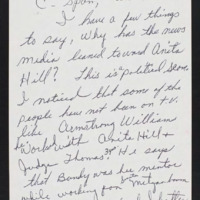 C-Span,
I have a few things
to say, why has the news
media leaned toward Anita
Hill? This is "political" Story.
I noticed that some of the
people have not been on t.v.
like Armstrong William
Work With Anita Hill &
Judge Thomas? He says
that was her
while working for